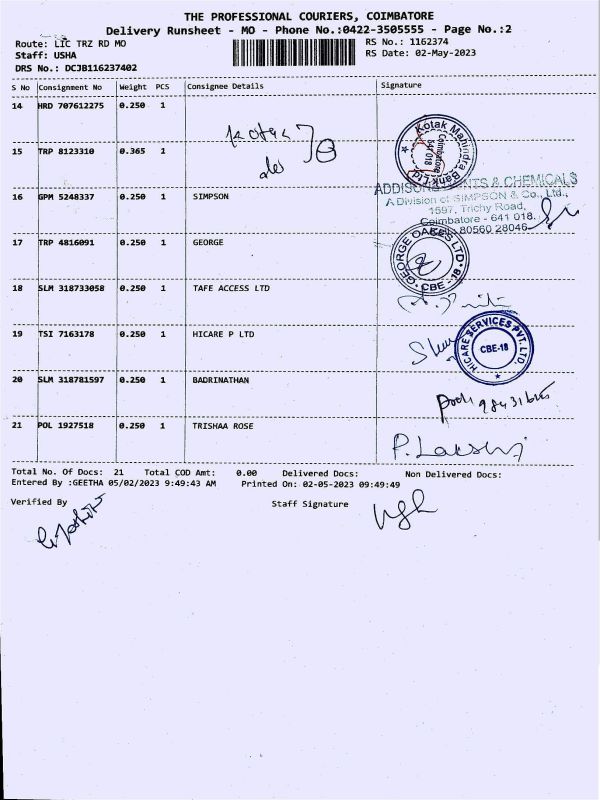 THE PROFESSIONAL COURIERS, COIMBATORE
Delivery Runsheet - MO - Phone No.:0422-3505555 - Page No.:2
Route: LIC TRZ RD MO
RS No.: 1162374
Staff: USHA
RS Date: 02-May-2023
DRS No.: DCJB116237402
S No Consignment No Weight PCS Consignee Details Signature
14 HRD 707612275 0.250 1
Kotak
Kotak Mahindra Bank Ltd
Coimbatore
641 018
15 TRP 8123310 0.365 1
16 GPM 5248337 0.250 1 SIMPSON
& CHEMICALS
A Division of SIMPSON & Co., Ltd.,
1597, Trichy Road,
Coimbatore - 641 018.
80560 28046
17 TRP 4816091 0.250 1 GEORGE
GEORGE OAKES LTD
CBE - 18
18 SLM 318733058 0.250 1 TAFE ACCESS LTD
19 TSI 7163178 0.250 1 HICARE P LTD
HICARE SERVICES PVT. LTD.
CBE-18
20 SLM 318781597 0.250 1 BADRINATHAN
21 POL 1927518 0.250 1 TRISHAA ROSE
Total No. Of Docs: 21 Total COD Amt: 0.00 Delivered Docs: Non Delivered Docs:
Entered By :GEETHA 05/02/2023 9:49:43 AM Printed On: 02-05-2023 09:49:49
Verified By Staff Signature